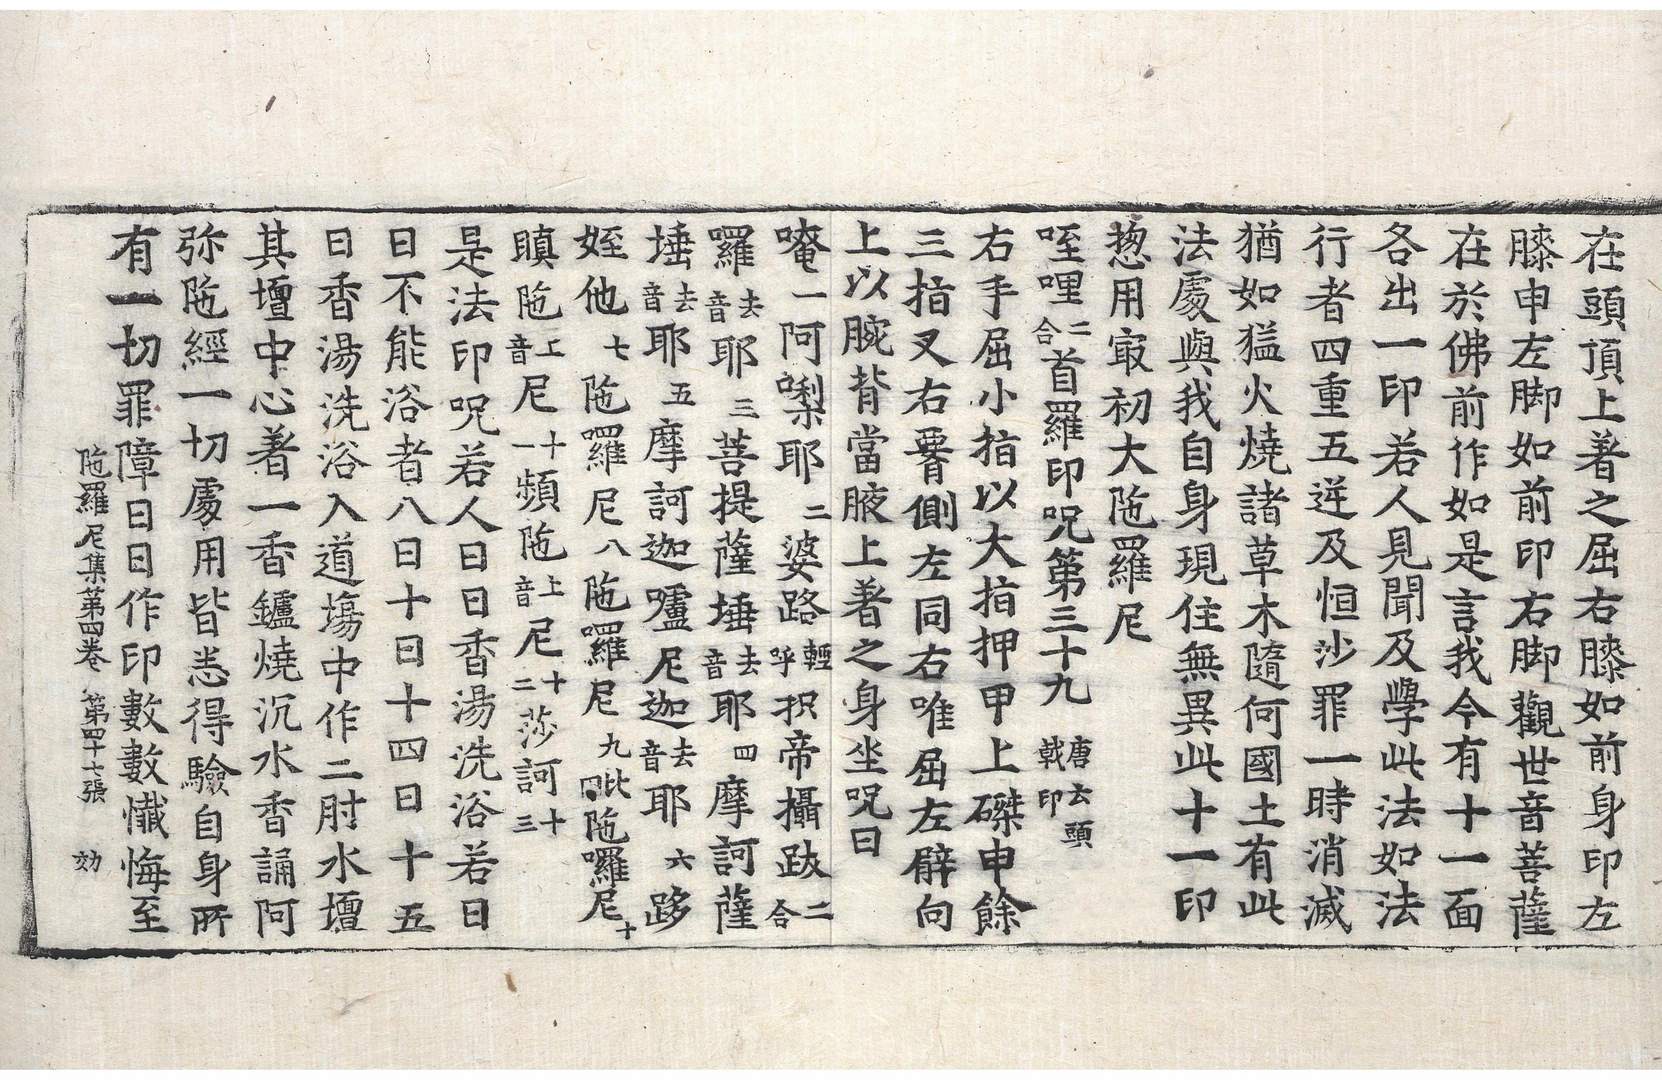 在頭頂上著之屈右膝如前身印左
膝申左脚如前印右脚觀世音菩薩
在於佛前作如是言我今有十一面
各出一印若人見聞及學此法如法
行者四重五逆及恒沙罪一時消滅
猶如猛火燒諸草木隨何國土有此
法處與我自身現住無異此十一印
惣用㝡初大陁羅尼
咥哩二合首羅印呪第三十九唐云頭戟印
右手屈小指以大指押甲上磔申餘
三指叉右䏶側左同右唯屈左臂向
上以腕背當腋上著之身坐呪曰
唵一阿㘑耶二婆路輕呼抧帝攝跋二合
羅去音耶三菩提薩埵去音耶四摩訶薩
埵去音耶五摩訶迦嚧尼迦去音耶六跢
姪他七陁囉尼八陁囉尼九毗陁囉尼十
瞋陁上音尼十一頻陁上音尼十二莎訶十三
是法印呪若人日日香湯洗浴若日
日不能浴者八日十日十四日十五
日香湯洗浴入道塲中作二肘水壇
其壇中心著一香鑪燒沉水香誦阿
弥陁經一切處用皆悉得驗自身所
有一切罪障日日作印數數懺悔至
陁羅尼集第四卷 第四十七張 効